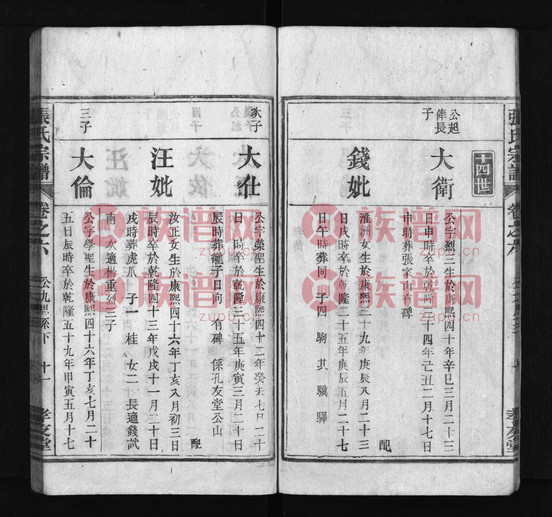 張氏宗譜
卷之六
十四世
公起
俸長
子
大衛
公字烈三生於康熙四十年辛巳三月二十三
日申時卒於
三十四年己丑二月十七日
申時葬張家山有碑
錢妣
配
淮洲女生於康熙二十九年庚辰八月二十三
日戌時卒於乾隆二十五年庚辰五月二十七
日午時葬同
子四
駒
其
驥
驛
次子
大仕
公字榮聖生於康熙四十二年癸未七月二十
日
時卒於乾隆三十五年庚寅三月二十
辰時葬
子日向
有碑
係孔友堂公山
汪妣
配
汝正女生於康熙四十六年丁亥八月初三日
辰時卒於乾隆四十三年戊戌十一月二十日
戌時葬虎爪
子一
桂
女二
長適錢試
南
次適楊重烈三子
三子
大倫
公字學聖生於康熙四十六年丁亥七月二十
五日辰時卒於乾隆五十九年甲寅五月十七
張氏宗譜
卷之六
公九
孫下
十一
孝友堂
族谱网